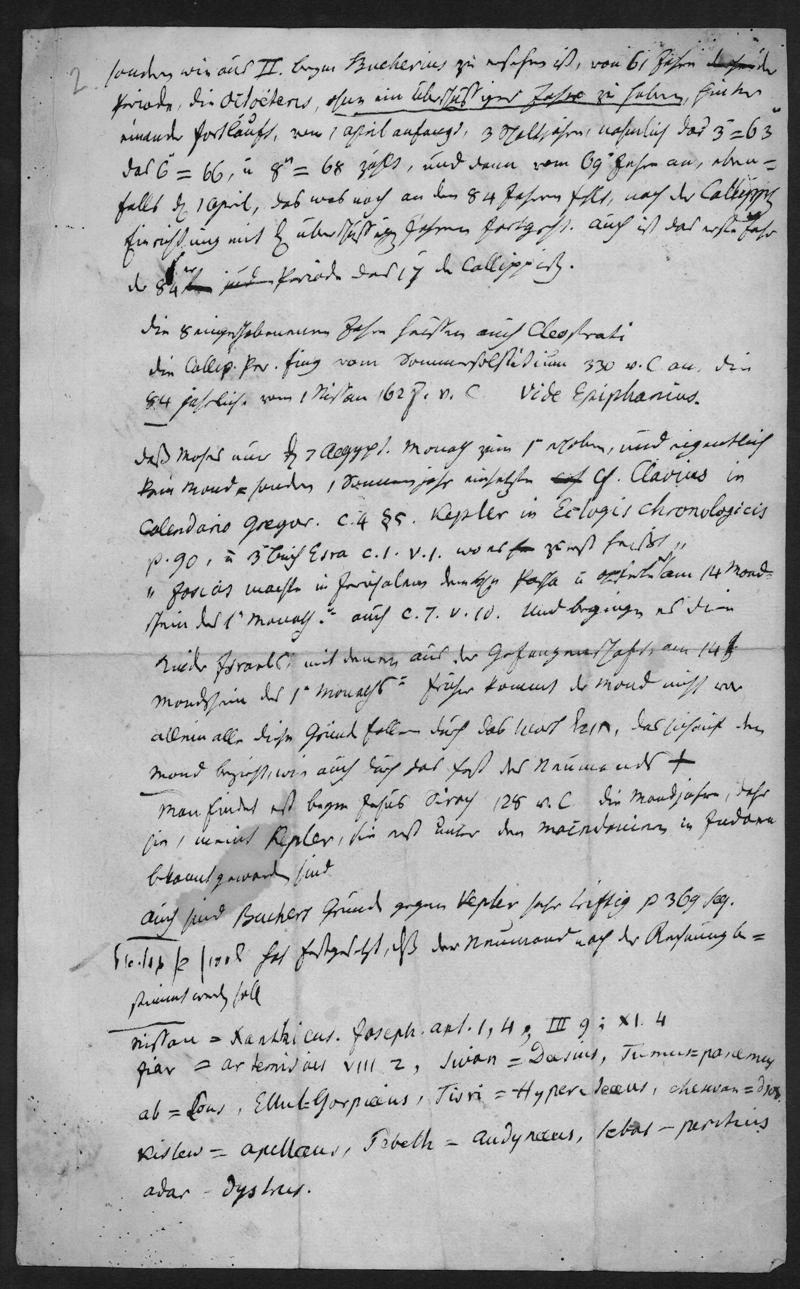 2.
sondern wie aus II. beym Bucherius zu ersehen ist, von 61 Jahren der
Periode, die Octoëteris, ohne ein überschüssiges Jahr zu haben, hinter
einander fortläuft, vom 1 April anfangs, 3 Schaltjahre, nehmlich das 3 = 63
das 6 = 66, u 8 = 68 zählt, und dann vom 69 Jahre an, eben=
falls 1 April, das was noch an den 84 Jahren fehlt, nach der Callippisch
Einrichtung mit überschüssigen Jahren fortgeht. auch ist das erste Jahr
der 84 Periode das 17 der Callippisch.
die 8 eingeschobenen Jahre heissen auch Cleostrati
die Callip. Per. fing vom Sommersolstitium 330 v. C an, die
84 jährliche vom 1 Nissan 162 v. C Vide Epiphanius.
daß Moses nur 7 Aegypt. Monath zum 1 erhoben, und eigentlich
kein Mond= sondern 1 Sonnenjahr einsetzte Cf. Clavius in
Calendario Gregor. C. 4 § 5. Kepler in Eclogis chronologicis
p. 90, u 3 Buch Esra C. 1. v. 1. wo es zuerst heisst „
„ Josias machte in Jerusalem dem Passa u am 14 Mond=
schein des 1 Monaths. auch C. 7. v. 10. Und begingen es die
Kinder Israels mit denen aus der Gefangenschaft, am 14
Mondschein des 1 Monaths = früher kommt der Mond nicht vor
allein alle diese Gründe fallen durch das Wort חדש, das sich auf den
Mond bezieht, wie auch durch das Fest des Neumonds +
Man findet erst beym Jesus Sirach 128 v. C die Mondjahre, daher
sie, meint Kepler, sie erst unter den Macedoniern in Judaea
bekannt geworden sind
auch sind Buchers Gründe gegen Kepler sehr triftig p 369 seq.
hat festgesetzt, daß der Neumond nach der Rechnung be=
stimmt werden soll
Nissan = Xanthicus. Joseph. ant. 1, 4; III 9; XI. 4
Jiar = artemisius VIII 2, Sivan = Daesius, Tamus = panemus
ab = Lous, Ellul = Gorpiaeus, Tisri = Hyperetaeus, chesvan = Dios
Kislew = apellaeus, Tebeth = audynaeus, Sebat = peritius
adar = dystrus.